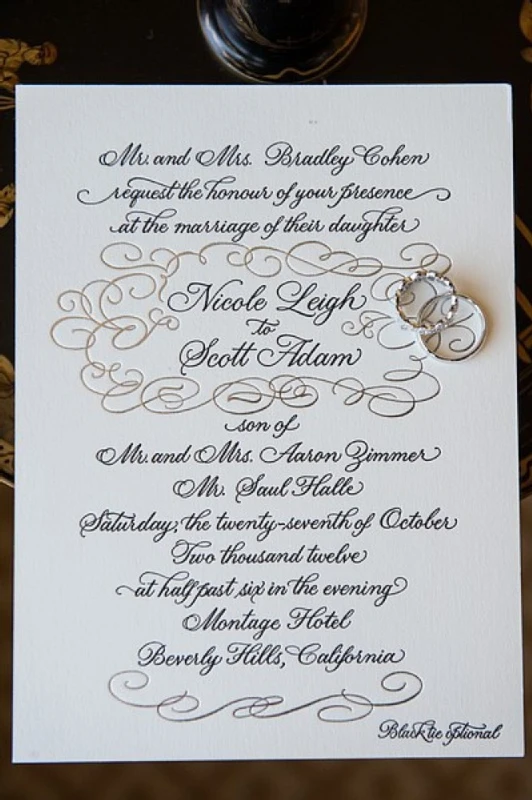 Mr. and Mrs. Bradley Cohen
request the honour of your presence
at the marriage of their daughter
Nicole Leigh
to
Scott Adam
son of
Mr. and Mrs. Aaron Zimmer
Mr. Saul Halle
Saturday, the twenty-seventh of October
Two thousand twelve
at half past six in the evening
Montage Hotel
Beverly Hills, California
Black tie optional